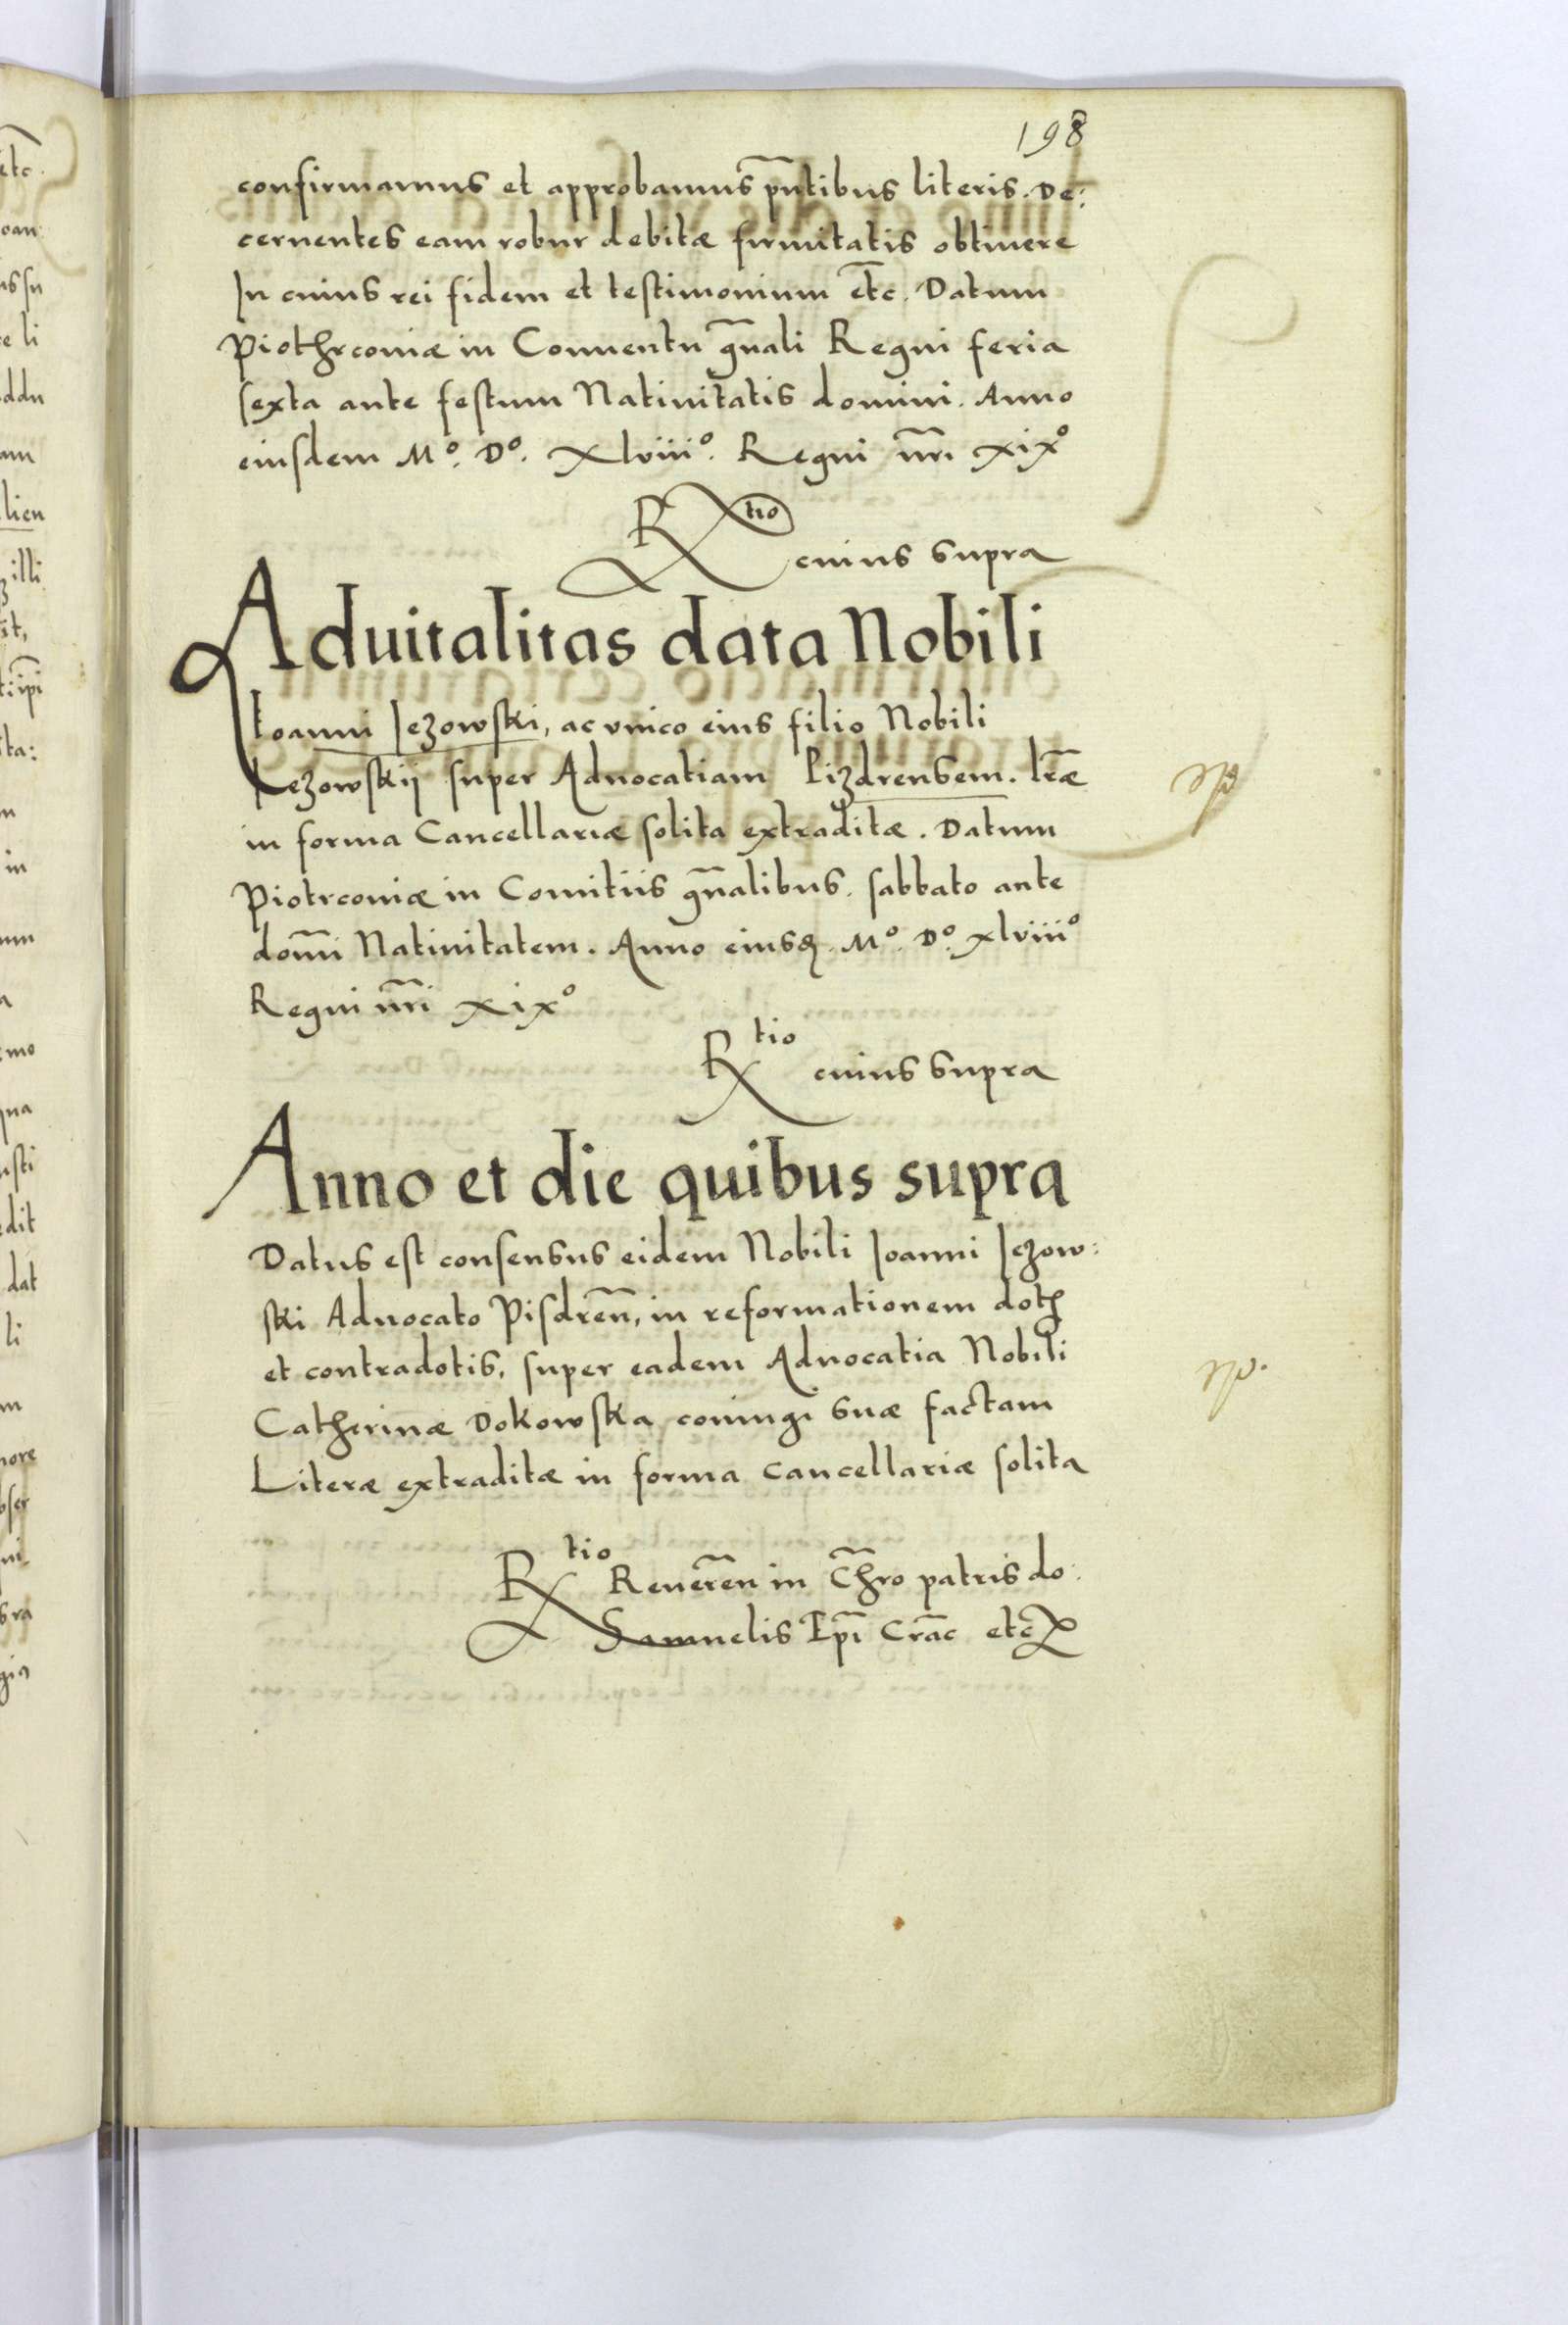 198
confirmamus et approbamus pn̄tibus literis. De:
cernentes eam robur debitæ firmitatis obtinere
In cuius rei fidem et testimonium etc̄. Datum
Piothrconiæ in Conuentu gn̄ali Regni feria
sexta ante festum Natiuitatis domini. Anno
eiusdem Mº. Dº. Xlviiiº. Regni nr̄i xixº
Rtio
cuius supra
Aduitalitas data Nobili
Ioanni Iezowski, ac vnico eius filio Nobili
Iezowskij super Aduocatiam Pizdrensem. lr̄æ
in forma Cancellariæ solita extraditæ. Datum
Piotrconiæ in Comitiis gn̄alibus. sabbato ante
domī Natiuitatem. Anno eiusꝗ. Mº. Dº. xlviiiº
Regni nr̄i xixº
Rtio cuius supra
Anno et die quibus supra
Datus est consensus eidem Nobili Ioanni Iezow:
ski Aduocato Pisdren̄, in reformationem dotꝭ
et contradotis, super eadem Aduocatia Nobili
Catherinæ Dokowska coniugi suæ factam
Literæ extraditæ in forma cancellariæ solita
Rtio Reueren̄ in Chr̄o patris do.
Samuelis Epī Crac̄ etc